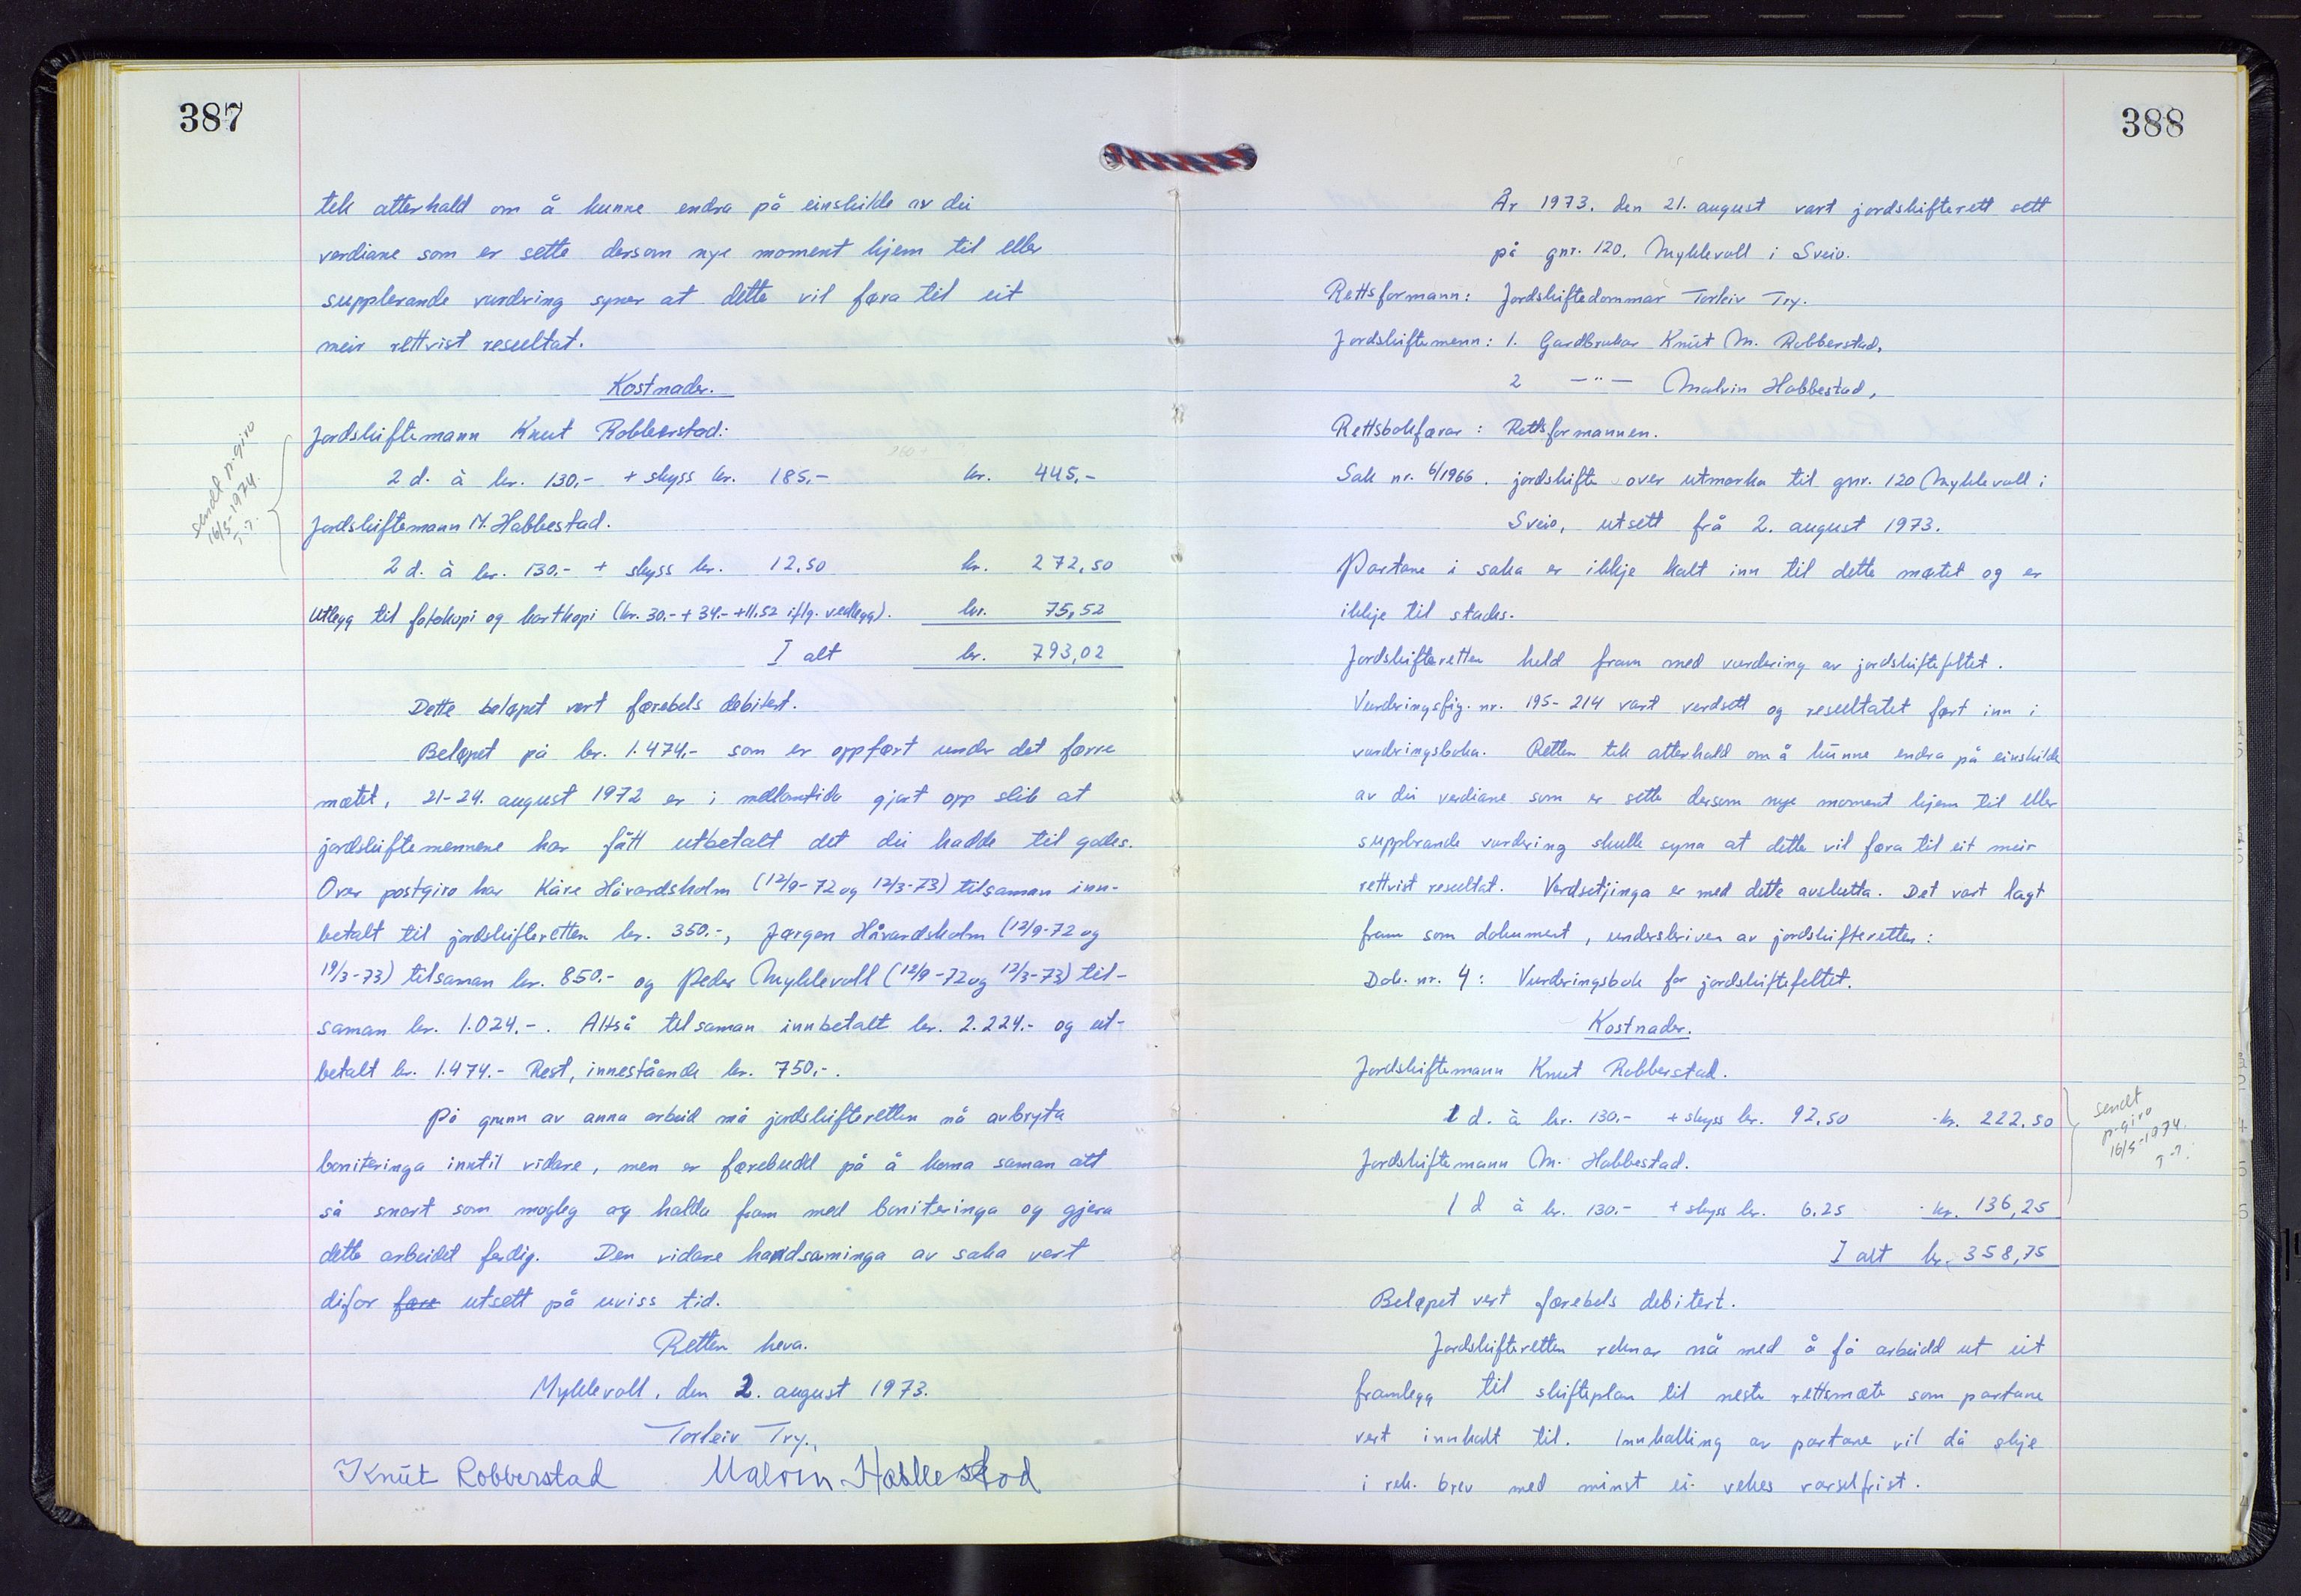 387
tek atterhald om å kunne endra på einskilde av dei
verdiane som er sette dersom nye moment kjem til eller
supplerande vurdring syner at dette vil føra til eit
meir rettvist resultat.
Kostnader.
Jordskiftemann Knut Robberstad:
2 d. à kr. 130,- + skyss kr. 185,- kr. 445,-
Jordskiftemann M. Habbestad.
2 d. à kr. 130.- + skyss kr. 12,50 kr. 272,50
Utlegg til fotokopi og kartkopi (kr. 30.- + 34.- + 11.52 iflg. vedlegg). kr. 75,52
I alt kr. 793,02
sendt p.giro
16/5-1974.
T.T.
Dette beløpet vert førebels debitert.
Beløpet på kr. 1.474,- som er oppført under det førre
møtet, 21-24. august 1972 er i mellomtida gjort opp slik at
jordskiftemennene har fått utbetalt det dei hadde til godes.
Over postgiro har Kåre Håvardsholm (12/9-72 og 12/3-73) tilsaman inn-
betalt til jordskifteretten kr. 350.-, Jørgen Håvardsholm (12/9-72 og
19/3-73) tilsaman kr. 850.- og Peder Myklevoll (12/9-72 og 12/3-73) til-
saman kr. 1.024.-. Altså tilsaman innbetalt kr. 2.224.- og ut-
betalt kr. 1.474.- Rest, inneståande kr. 750,-.
På grunn av anna arbeid må jordskifteretten nå avbryta
boniteringa inntil vidare, men er førebudd på å koma saman att
så snart som mogleg og halda fram med boniteringa og gjera
dette arbeidet ferdig. Den vidare handsaminga av saka vert
difor føre utsett på uviss tid.
Retten heva.
Myklevoll, den 2. august 1973.
Torleiv Try.
Knut Robberstad Malvin Habbestad
388
År 1973, den 21. august vart jordskifterett sett
på gnr. 120, Myklevoll i Sveio.
Rettsformann: Jordskiftedommar Torleiv Try.
Jordskiftemenn: 1. Gardbrukar Knut M. Robberstad,
2 —"— Malvin Habbestad,
Rettsbokførar: Rettsformannen.
Sak nr. 6/1966. jordskifte over utmarka til gnr. 120 Myklevoll i
Sveio, utsett frå 2. august 1973.
Partane i saka er ikkje kalt inn til dette møtet og er
ikkje til stades.
Jordskifteretten held fram med vurdering av jordskiftefeltet.
Vurderingsfig. nr. 195-214 vart verdsett og resultatet ført inn i
vurderingsboka. Retten tek atterhald om å kunne endra på einskilde
av dei verdiane som er sette dersom nye moment kjem til eller
supplerande vurdering skulle syna at dette vil føra til eit meir
rettvist resultat. Verdsetjinga er med dette avslutta. Det vart lagt
fram som dokument, underskriven av jordskifteretten:
Dok. nr. 4: Vurderingsbok for jordskiftefeltet.
Kostnader.
Jordskiftemann Knut Robberstad.
1 d. à kr. 130.- + skyss kr. 92,50 kr. 222,50
Jordskiftemann M. Habbestad.
1 d à kr. 130.- + skyss kr. 6.25 kr. 136,25
I alt kr. 358,75
sendt
p.giro
16/5-1974.
T.T.
Beløpet vert førebels debitert.
Jordskifteretten reknar nå med å få arbeidd ut eit
framlegg til skifteplan til neste rettsmøte som partane
vert innkalt til. Innkalling av partane vil då skje
i rek. brev med minst ei vekes varselfrist.